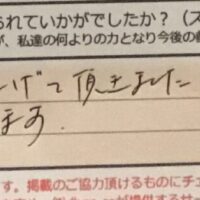 られていかがでしたか？（ス
が、私達の何よりの力となり今後の
げて頂きました
ます．
す。掲載のご協力頂けるものにチェ